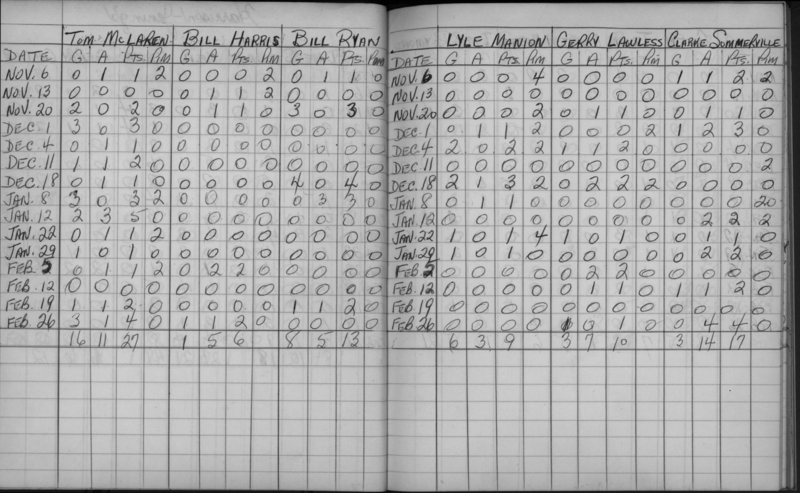 TOM McLAREN BILL HARRIS BILL RYAN
DATE G A Pts. Pim G A Pts Pim G A Pts. Pim
NOV. 6 0 1 1 2 0 0 0 2 0 1 1 0
NOV. 13 0 0 0 0 0 1 1 2 0 0 0 0
NOV. 20 2 0 2 0 0 1 1 0 3 0 3 0
DEC. 1 3 0 3 0 0 0 0 0 0 0 0 0
DEC. 4 0 1 1 0 0 0 0 0 0 0 0 0
DEC. 11 1 1 2 0 0 0 0 0 0 0 0 0
DEC. 18 0 1 1 0 0 0 0 0 4 0 4 0
JAN. 8 3 0 3 2 0 0 0 0 0 3 3 0
JAN. 12 2 3 5 0 0 0 0 0 0 0 0 0
JAN. 22 0 1 1 2 0 0 0 0 0 0 0 0
JAN. 29 1 0 1 0 0 0 0 0 0 0 0 0
FEB. 5 0 1 1 2 0 2 2 0 0 0 0 0
FEB. 12 0 0 0 0 0 0 0 0 0 0 0 0
FEB. 19 1 1 2 0 0 0 0 0 1 1 2 0
FEB. 26 3 1 4 0 1 1 2 0 0 0 0 0
16 11 27 1 5 6 8 5 13
LYLE MANION GERRY LAWLESS CLARKE SOMMERVILLE
DATE G A Pts. Pim G A Pts. Pim G A Pts. Pim
NOV. 6 0 0 0 4 0 0 0 0 1 1 2 2
NOV. 13 0 0 0 0 0 0 0 0 0 0 0 0
NOV. 20 0 0 0 2 0 1 1 0 0 1 1 0
DEC. 1 0 1 1 2 0 0 0 2 1 2 3 0
DEC. 4 2 0 2 2 1 1 2 0 0 0 0 0
DEC. 11 0 0 0 0 0 0 0 0 0 0 0 2
DEC. 18 2 1 3 2 0 2 2 2 0 0 0 0
JAN. 8 0 1 1 0 0 0 0 0 0 0 0 20
JAN. 12 0 0 0 0 0 0 0 0 0 2 2 2
JAN. 22 1 0 1 4 1 0 1 0 0 1 1 0
JAN. 29 1 0 1 0 0 0 0 0 0 2 2 0
FEB. 2 0 0 0 0 0 2 2 0 0 0 0 0
FEB. 12 0 0 0 0 0 1 1 0 1 1 2 0
FEB. 19 0 0 0 0 0 0 0 0 0 0 0 0
FEB. 26 0 0 0 0 1 0 1 0 0 4 4 0
6 3 9 3 7 10 3 14 17